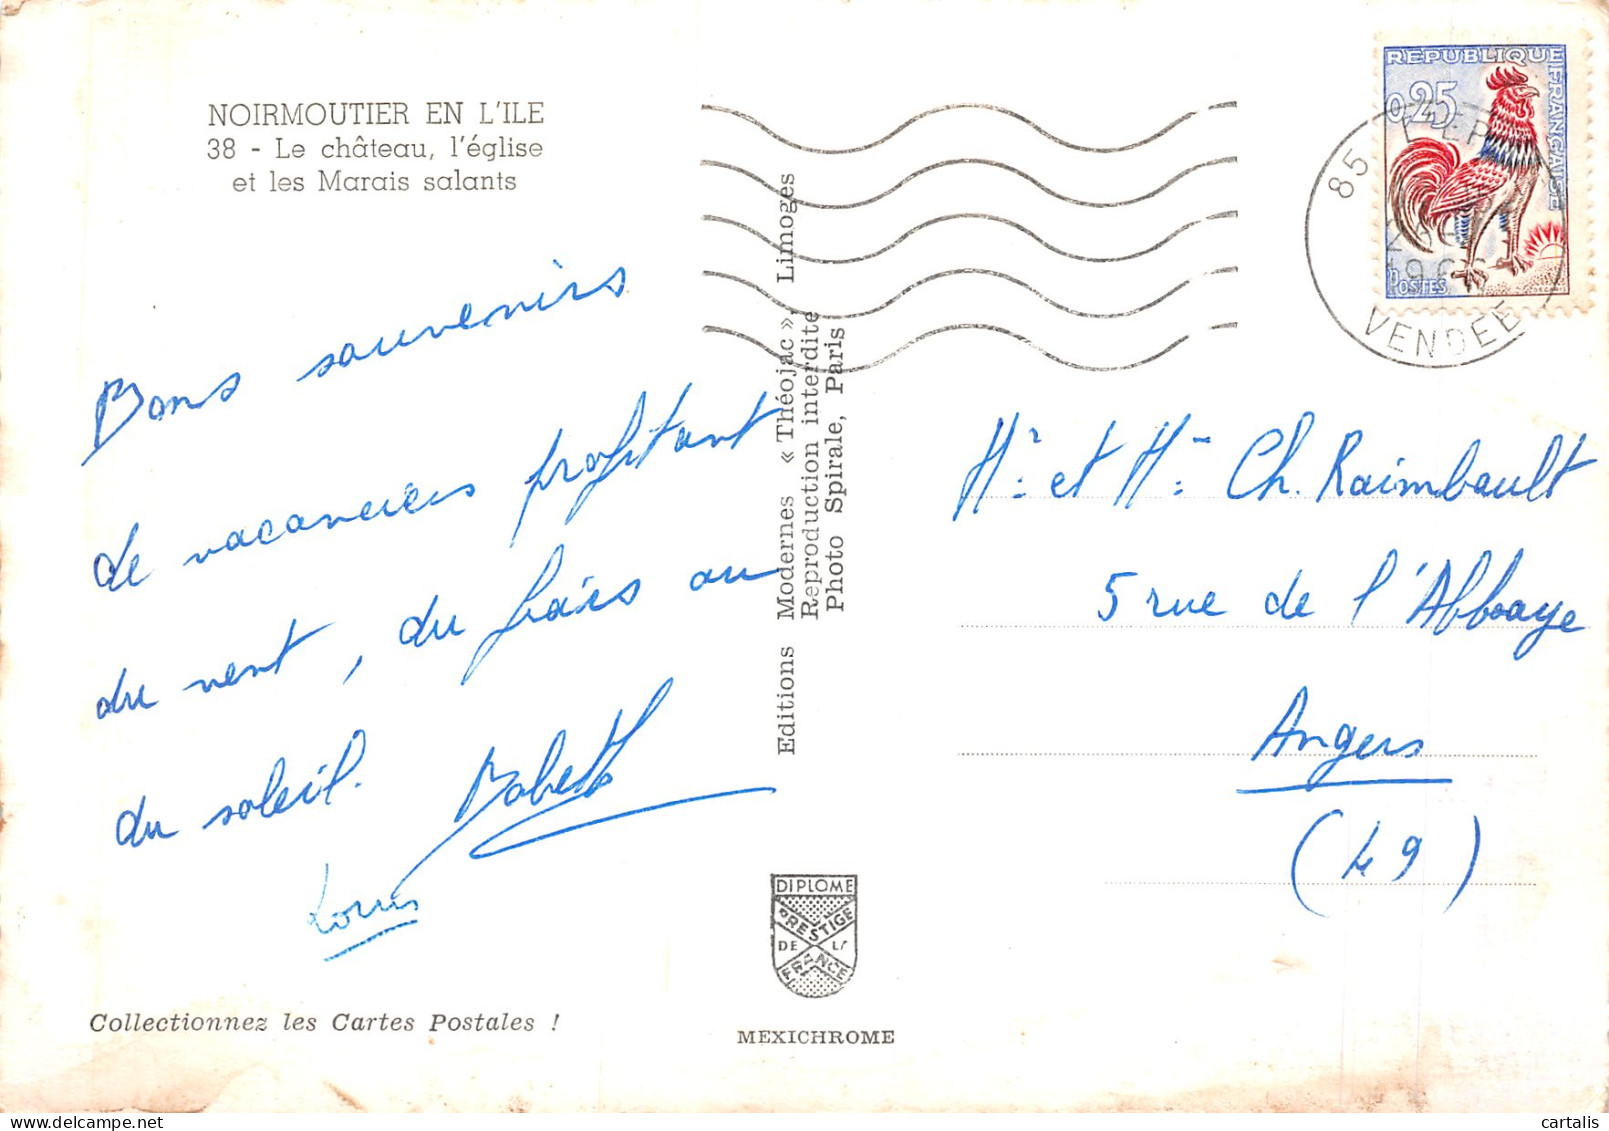 NOIRMOUTIER EN L'ILE
38 - Le château, l'église
et les Marais salants
Bons souvenirs
de vacanciers profitant
du vent, du frais ou
du soleil.
Babeth
Louis
Collectionnez les Cartes Postales !
Editions Modernes « Théojac », Limoges
Reproduction interdite
Photo Spirale, Paris
DIPLOME
PRESTIGE
DE LA
FRANCE
MEXICHROME
REPUBLIQUE FRANÇAISE
0,25
POSTES
85
VENDEE
Mr et Mme Ch. Raimbault
5 rue de l'Abbaye
Angers
(49)
cartalis